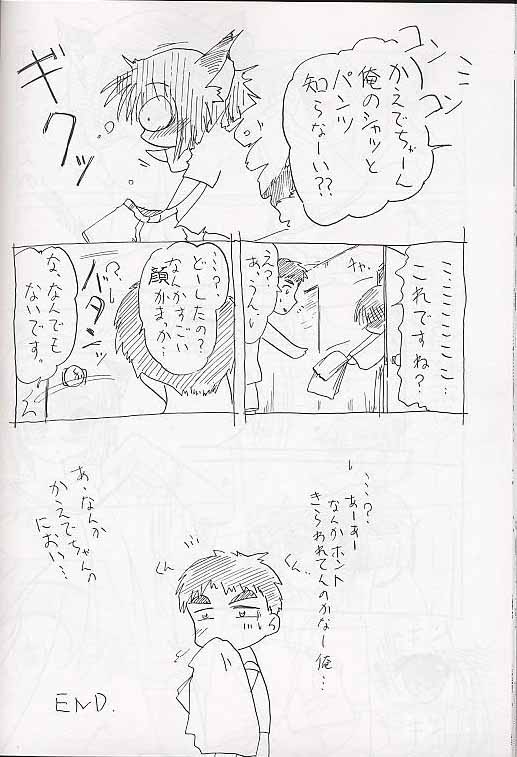 コンコン
かえでちゃーん
俺のシャツと
パンツ
知らなーい??
ギクッ
ガチャ
ミミミミミミミ…
これですね?…
え?
あ、うん…
…?
どーしたの?
なんかすごい
顔がまっか…
バタンッ
な、なんでも
ないです。
…?
あーあー
なんかホント
きらわれてんのかなー俺…
くん…
くん
あ、なんか
かえでちゃんの
におい…
END.